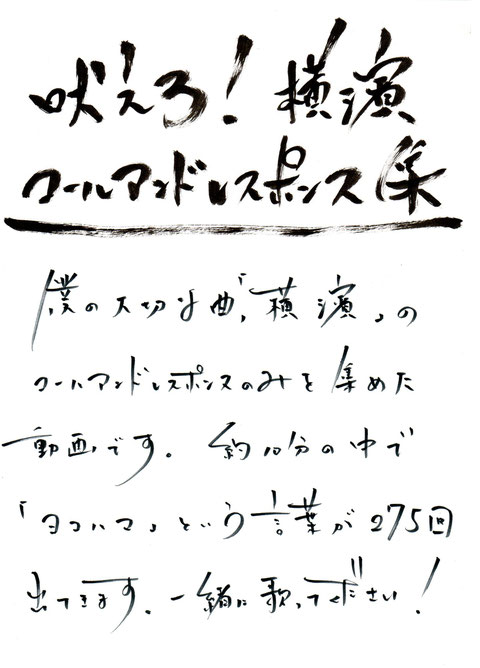 吠えろ!横濱
コールアンドレスポンス集
僕の大切な曲、「横濱」の
コールアンドレスポンスのみを集めた
動画です。約10分の中で
「ヨコハマ」という言葉が275回
出てきます。一緒に歌ってください!